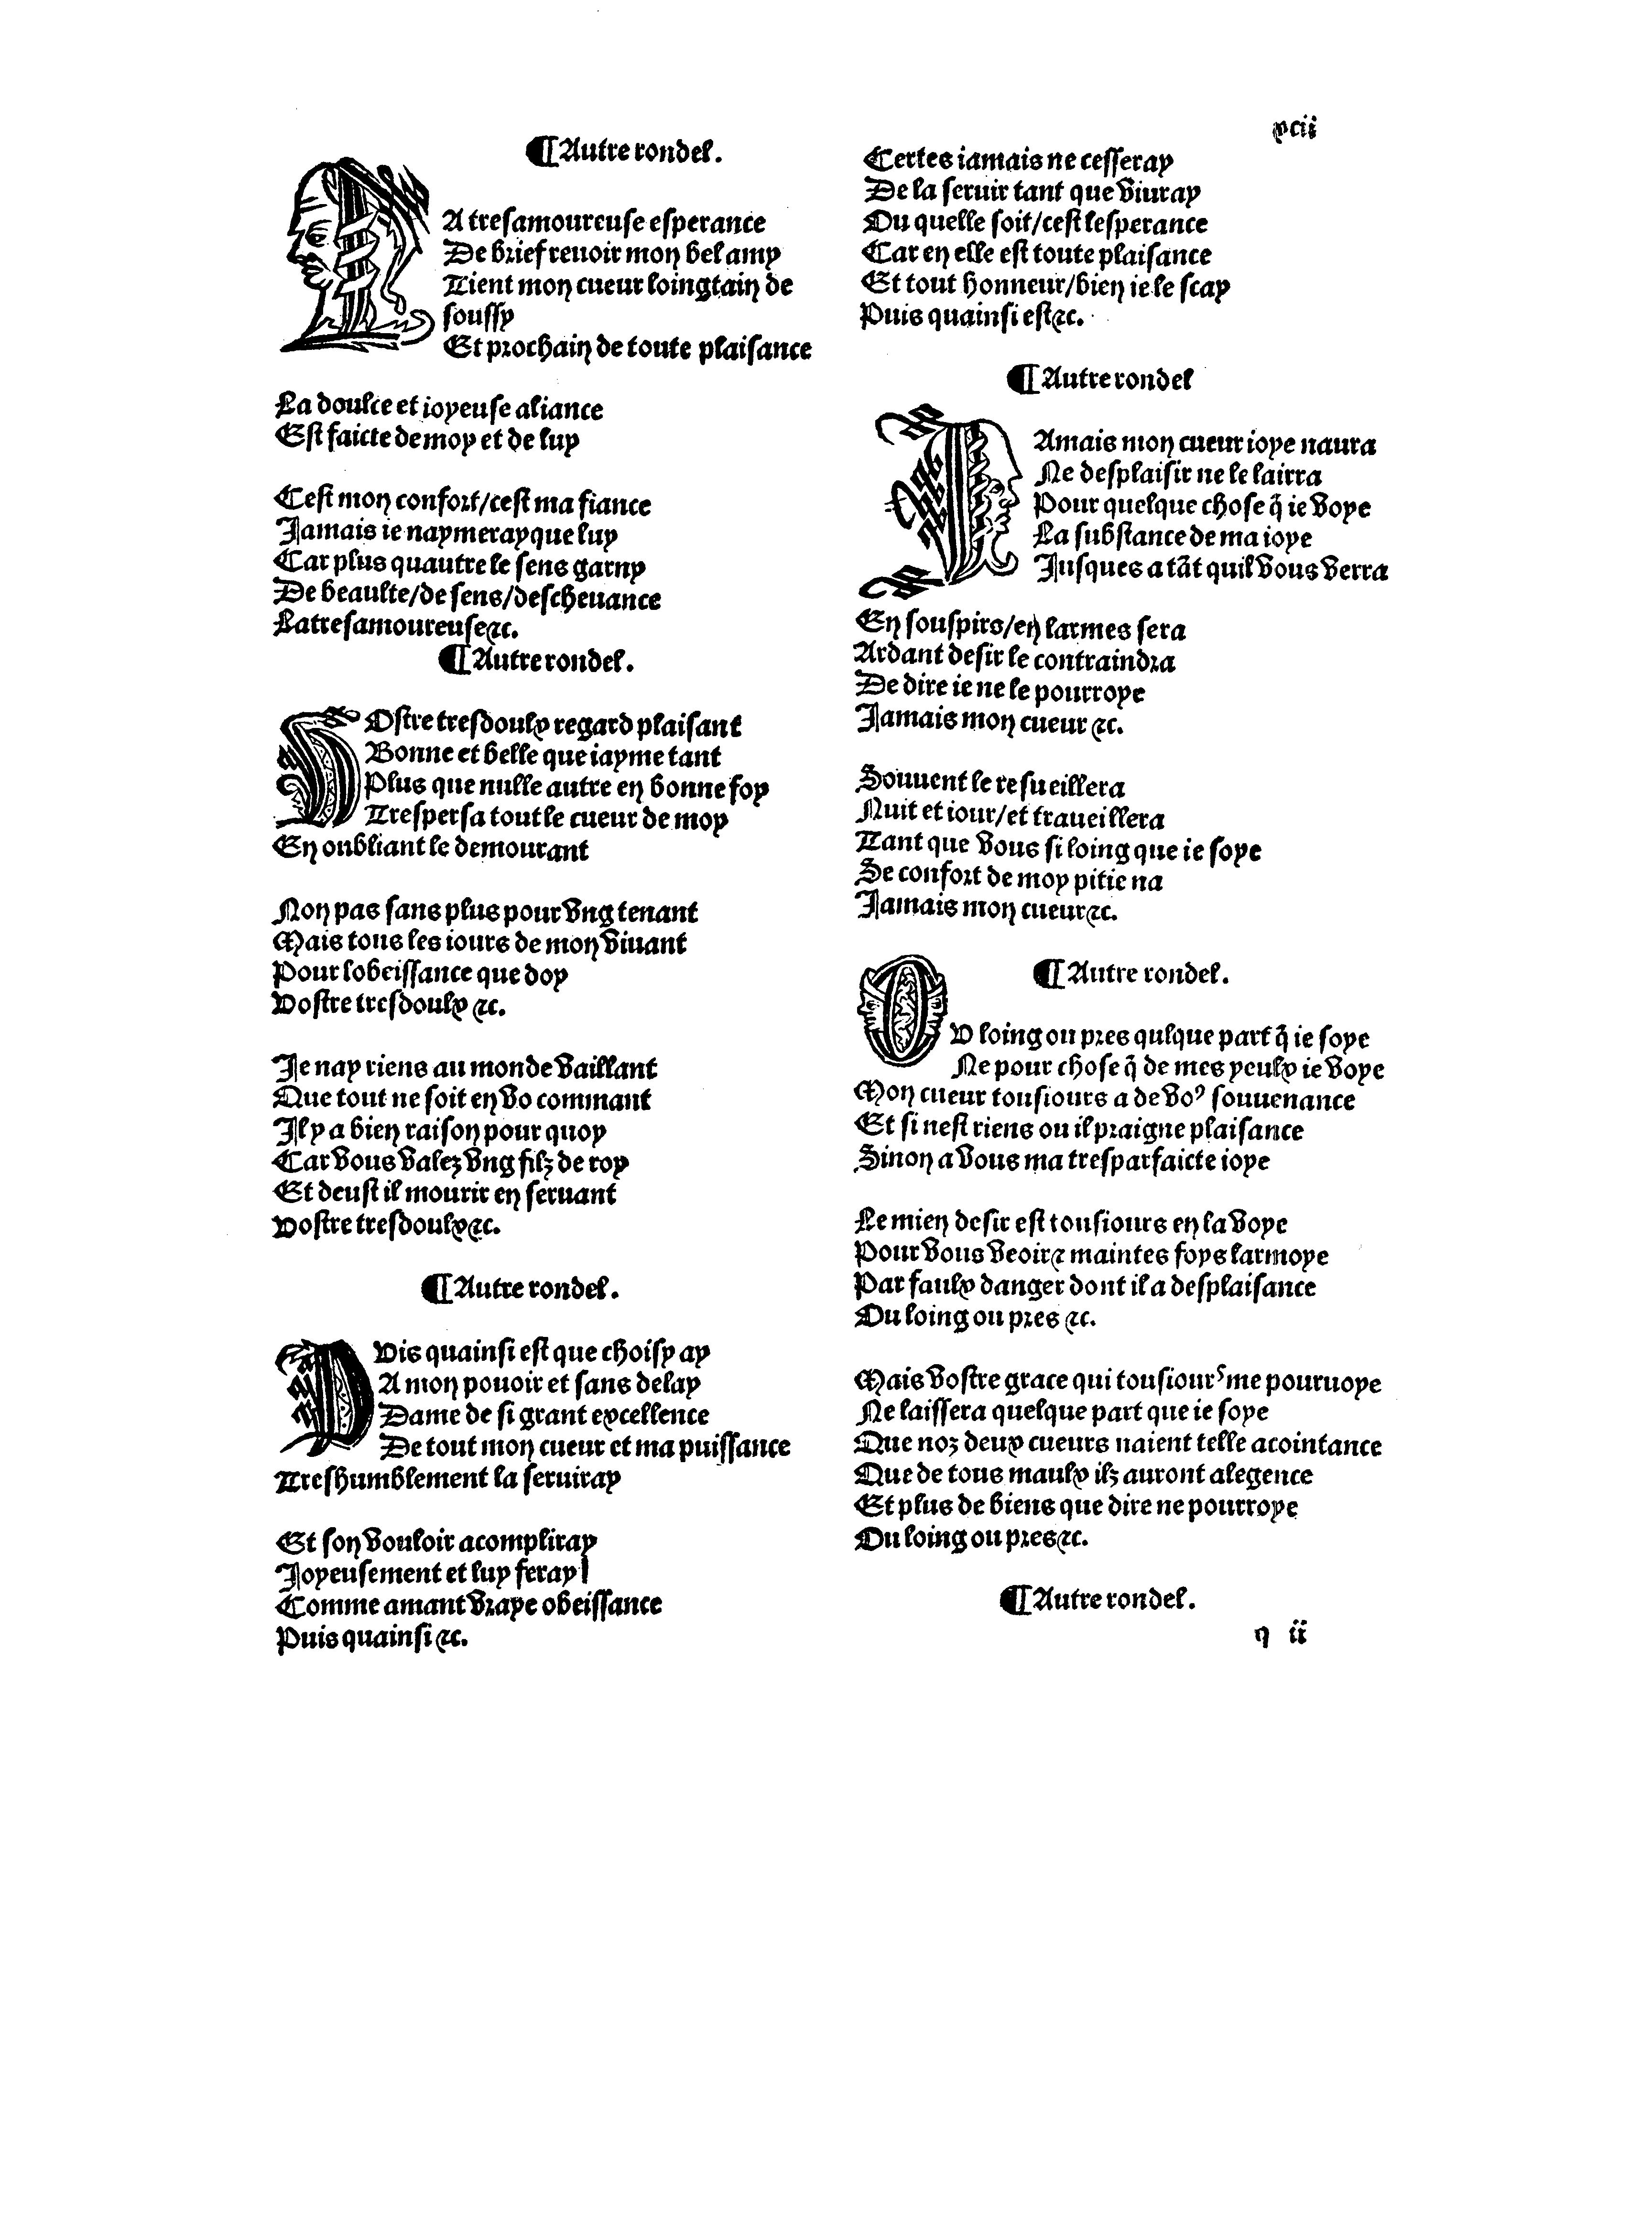 xcii
¶ Autre rondel.
LA tresamoureuse esperance
De brief reuoir mon bel amy
Tient mon cueur loingtain de
soussy
Et prochain de toute plaisance
La doulce et ioyeuse aliance
Est faicte de moy et de luy
Cest mon confort/cest ma fiance
Jamais ie naymeray que luy
Car plus quautre le sens garny
De beaulte/de sens/descheuance
La tresamoureuse⁊c.
¶ Autre rondel.
VOstre tresdoulx regard plaisant
Bonne et belle que iayme tant
Plus que nulle autre en bonne foy
Trespersa tout le cueur de moy
En oubliant le demourant
Non pas sans plus pour vng tenant
Mais tous les iours de mon viuant
Pour lobeissance que doy
Vostre tresdoulx ⁊c.
Je nay riens au monde vaillant
Que tout ne soit en vo commant
Il y a bien raison pour quoy
Car vous valez vng filz de roy
Et deust il mourir en seruant
Vostre tresdoulx⁊c.
¶ Autre rondel.
PVis quainsi est que choisy ay
A mon pouoir et sans delay
Dame de si grant excellence
De tout mon cueur et ma puissance
Treshumblement la seruiray
Et son vouloir acompliray
Joyeusement et luy feray
Comme amant vraye obeissance
Puis quainsi ⁊c.
Certes iamais ne cesseray
De la seruir tant que viuray
Ou quelle soit/cest lesperance
Car en elle est toute plaisance
Et tout honneur/bien ie le scay
Puis quainsi est⁊c.
¶ Autre rondel
IAmais mon cueur ioye naura
Ne desplaisir ne le lairra
Pour quelque chose q̃ ie voye
La substance de ma ioye
Jusques a tãt quil vous verra
En souspirs/en larmes sera
Ardant desir le contraindra
De dire ie ne le pourroye
Jamais mon cueur ⁊c.
Souuent le resueillera
Nuit et iour/et traueillera
Tant que vous si loing que ie soye
Se confort de moy pitie na
Jamais mon cueur⁊c.
¶ Autre rondel.
OV loing ou pres qulque part q̃ ie soye
Ne pour chose q̃ de mes yeulx ie voye
Mon cueur tousiours a de voꝰ souuenance
Et si nest riens ou il praigne plaisance
Sinon a vous ma tresparfaicte ioye
Le mien desir est tousiours en la voye
Pour vous veoir⁊ maintes foys larmoye
Par faulx danger dont il a desplaisance
Ou loing ou pres ⁊c.
Mais vostre grace qui tousiourˢ me pouruoye
Ne laissera quelque part que ie soye
Que noz deux cueurs naient telle acointance
Que de tous maulx ilz auront alegence
Et plus de biens que dire ne pourroye
Ou loing ou pres⁊c.
¶ Autre rondel.
q ii